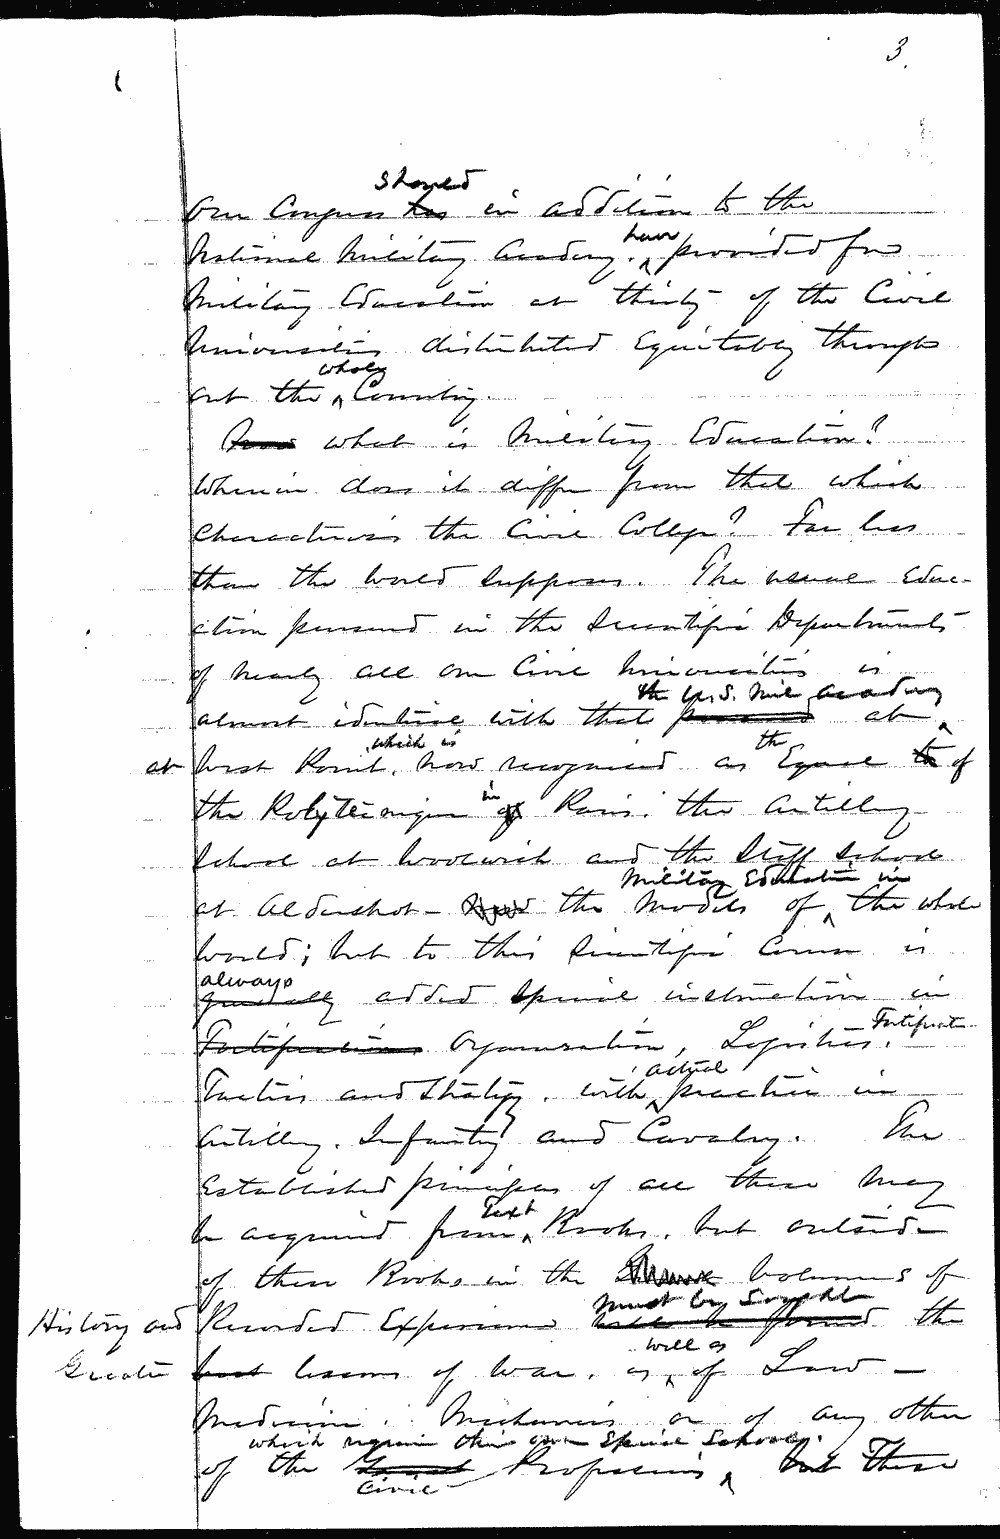 3.
should
Our Congress has in addition to the
have
National Military Academy. provided for
Military Education at thirty of the Civil
Universities distributed Equitably through
whole
out the Country.
Now what is Military Education?
Wherein does it differ from that which
Characterises the Civil College? Far less
than the world supposes. The usual Edu-
cation pursued in the Scientific Departments
of nearly all our Civil Universities is
the U.S. Mil Academy
almost identical with that pursued at
which is the
at West Point. now recognised as Equal to of
in
the Polytecnique of Paris. the Artillery
School at Woolwich and the Staff School
Military Education in
at Aldershot - the Models of the whole
world; but to this Scientific Course is
always
generally added Special instruction in
Fortification
Fortifications Organization, Logistics.
actual
Tactics and Strategy. with practice in
Artillery. Infantry and Cavalry. The
Established principles of all these may
Text
be acquired from Books. but outside
of these Books in the Volumes of
must be sought
History and Recorded Experience will be found the
will as
Greater best lessons of War. as of Law -
Medicine. Mechanics or of any other
which require their own Special Schools.
of the Professions but These
Civil